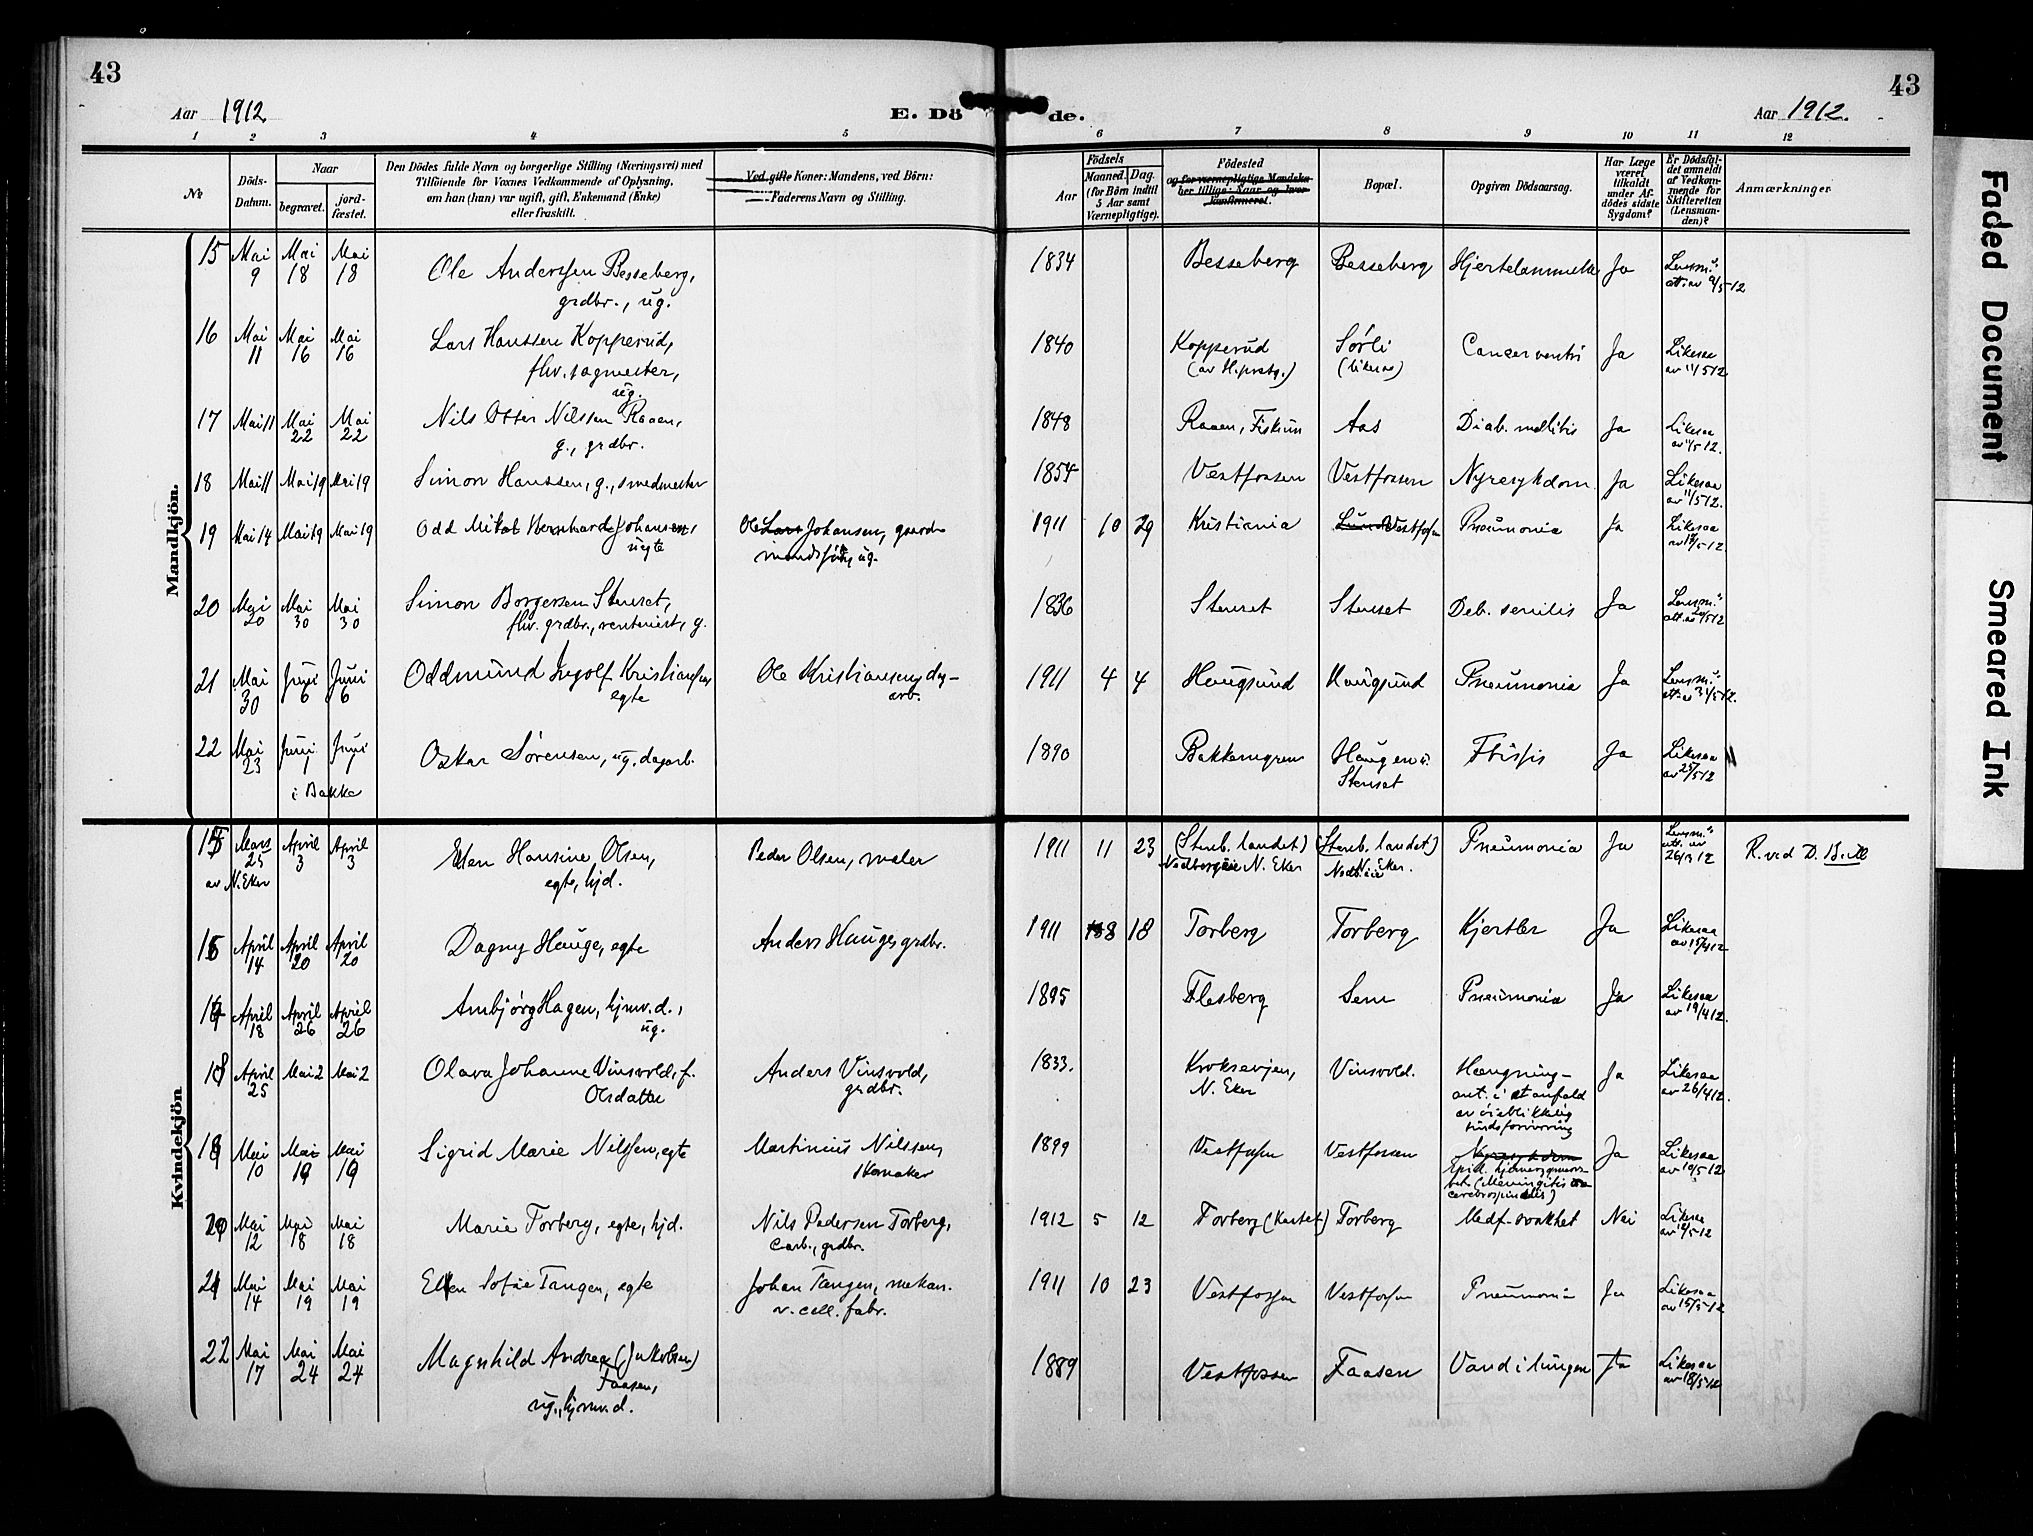 43
43
Aar 1912
E. Dö de.
Aar 1912.
1 2 3 4 5 6 7 8 9 10 11 12
№
Döds-Datum.
Naar
begravet.
jord-fæstet.
Den Dödes fulde Navn og borgerlige Stilling (Næringsvei) med
Tilföiende for Voxnes Vedkommende af Oplysning,
om han (hun) var ugift, gift, Enkemand (Enke)
eller fraskilt.
Ved gifte Koner: Mandens, ved Börn:
Faderens Navn og Stilling.
Födsels
Aar
Maaned. Dag.
(for Börn indtil
5 Aar samt
Værnepligtige).
Födested
og for værnepligtige Mandska-
ber tillige: Naar og hvor
konfirmeret.
Bopæl.
Opgiven Dödsaarsag.
Har Læge
været
tilkaldt
under Af-
dödes sidste
Sygdom?
Er Dödsfal-
det anmeldt
af Vedkom-
mende for
Skifteretten
(Lensman-
den)?
Anmærkninger
Mandkjön.
15 Mai 9 Mai 18 Mai 18 Ole Anderssen Besseberg, grdbr., ug. 1834 Besseberg Besseberg Ja Lensm.s att. av 9/5 12
16 Mai 11 Mai 16 Mai 16 Lars Hanssen Kopperud, fhv. sagmester, ug. 1840 Kopperud Sørli Cancer ventri Ja Likesaa av 11/5 12
17 Mai 11 Mai 22 Mai 22 Nils Otter Nilssen Raaen, g., grdbr. 1848 Raaen, Fiskum Aas Diab. mellitis Ja Likesaa
18 Mai 11 Mai 19 Mai 19 Simon Hanssen, g., smedmester 1854 Vestfossen Vestfossen Nyresykdom. Ja Likesaa av 11/5 12.
19 Mai 14 Mai 19 Mai 19 Odd Mikal Bernhard Johansen, uegte Ole Lars Johansen, gaard- ug. 1911 10 29 Kristiania Vestfossen Pneumonia Ja Likesaa
20 Mai 20 Mai 30 Mai 30 Simon Borgersen Stenset, fhv. grdbr., rentenist, g. 1836 Stenset Stenset Deb. senilis Ja Lensm.s
21 Mai 30 Juni 6 Juni 6 Oddmund Ingolf Kristiansen egte Ole Kristiansen, dag- arb. 1911 4 4 Hougsund Hougsund Pneumonia Ja Lensm.s att. av 31/5 12.
22 Mai 23 Juni 1 Juni 1 i Bakke Oskar Sørensen, ug. dagarb. 1890 Haugen u. Stenset Ja Likesaa av 25/5 12
Kvindekjön
15 av N. Eker Mars 25 April 3 April 3 Ellen Hansine Olsen, egte, hjd. Peder Olsen, maler 1911 11 23 (Stenb. landet) N. Eker (Stenb. landet) N. Eker. Pneumonia Ja Lensm.s att. av 26/3 12 R. ved D.
16 April 14 April 20 April 20 Dagny Hauge, egte Anders Hauge, grdbr. 1911 8 18 Torberg Torberg Kjertler Ja Likesaa av 15/4 12
17 April 18 April 26 April 26 Ambjørg Hagen, hjmv. d., ug. 1895 Flesberg Sem Pneumonia Ja Likesaa av 19/4 12.
18 April 25 Mai 2 Mai 2 Olava Johanne Vinsvold, f. Olsdatter Anders Vinsvold, grdbr. 1833. N. Eker Vinsvold. Hængning- ant. i et anfald av øieblikkelig sindsforvirring Ja Likesaa av 26/4 12.
19 Mai 10 Mai 19 Mai 19 Sigrid Marie Nilssen, egte Martinius Nilssen, skomaker 1899 Vestfossen Vestfossen Nyresykdom Epid. (Meningitis cerebrospinalis) Ja Likesaa av 10/5 12
20 Mai 12 Mai 18 Mai 18 Marie Torberg, egte, hjd. Nils Pedersen Torberg, grdbr. 1912 5 12 Torberg Torberg Medf. svakhet Nei Likesaa av 18/5 12
21 Mai 14 Mai 19 Mai 19 Ellen Sofie Tangen, egte Johan Tangen, mekan. v. cell. fabr. 1911 10 23 Vestfossen Vestfossen Pneumonia Ja Likesaa av 15/5 12
22 Mai 17 Mai 24 Mai 24 Magnhild Andrea (Jakobsen) Faasen, ug., hjmv. d. 1889 Vestfossen Faasen Vand i lungen Ja Likesaa av 18/5 12
Faded Document
Smeared Ink